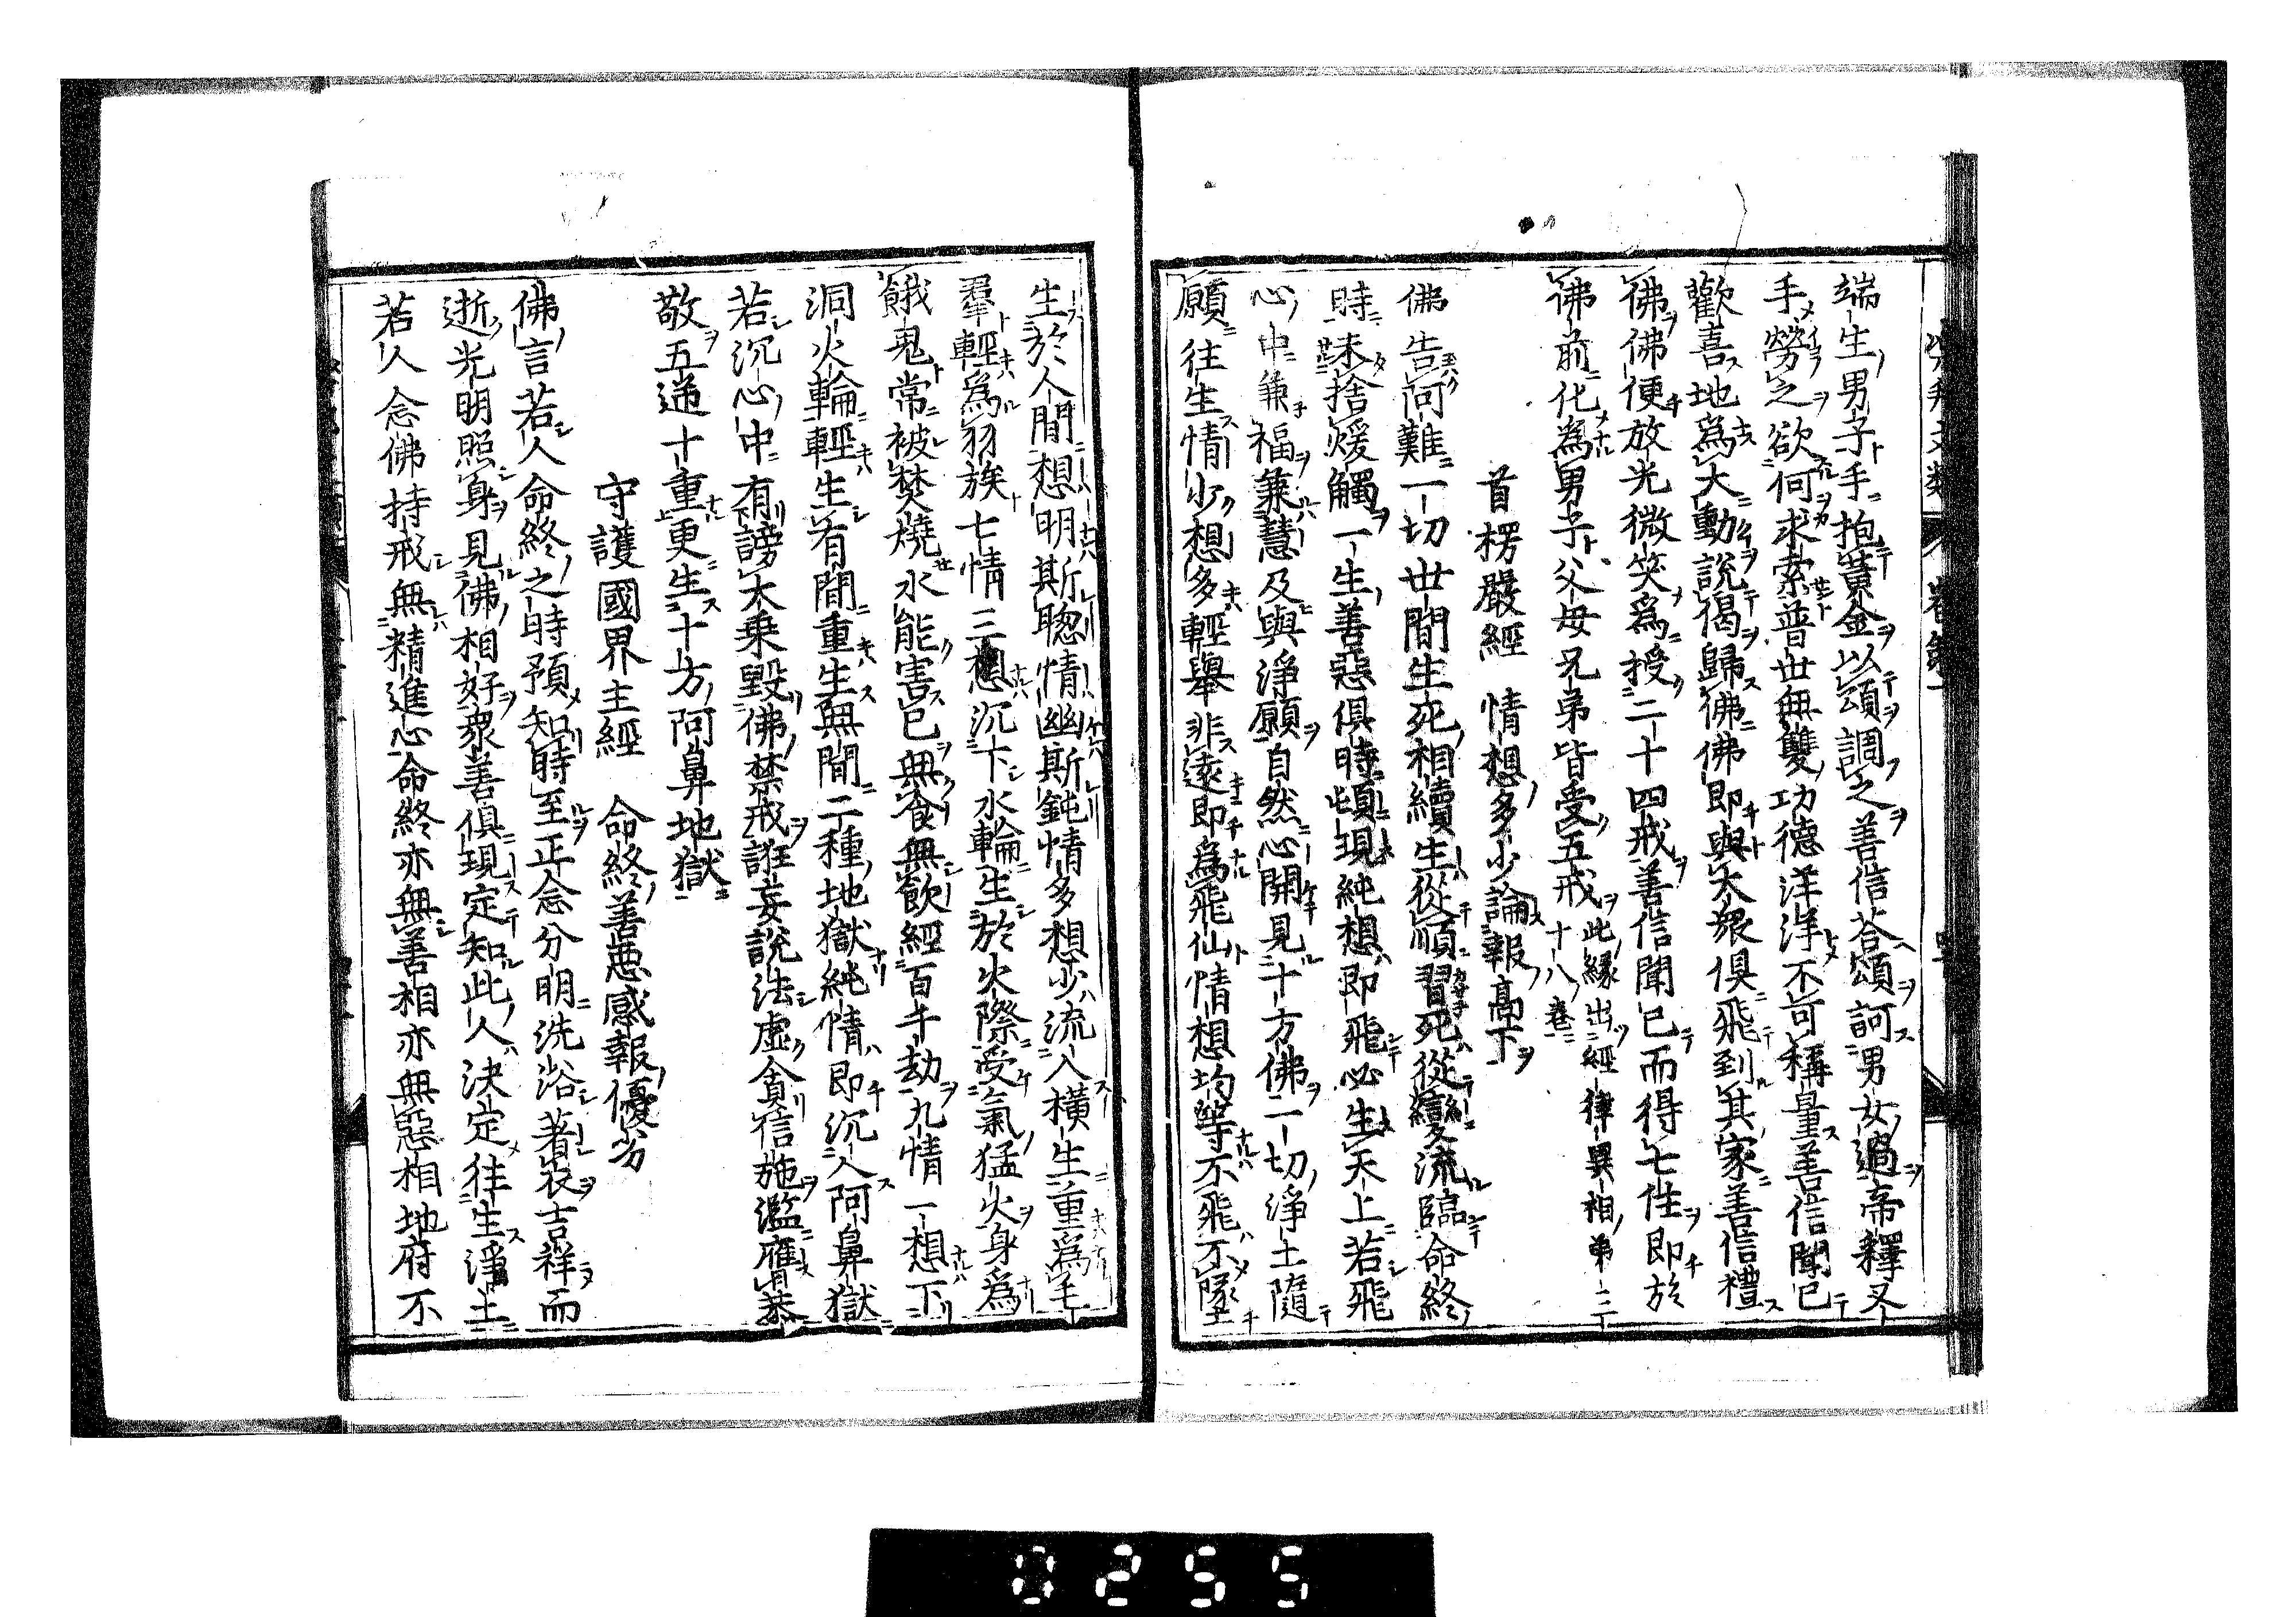 端生男子手抱黃金以頌調之善信荅頌訶男女過帝釋叉
手勞之欲何求索普世無雙功德洋洋不可稱量善信聞已
歡善地爲大動說偈歸佛佛即與大眾俱飛到其家善信禮
佛佛便放光微笑爲授二十四戒善信聞已而得七住即於
佛前化為男子父母兄弟皆受五戒此緣出經律異相第三十八卷
首楞嚴經 情想多少論報高下
佛告阿難一切世間生死相續生從順習死從變流臨命終
時未捨煖觸一生善惡俱時頓現純想即飛必生天上若飛
心中兼福兼慧及與淨願自然心開見十方佛一切淨土隨
願往生情少想多輕舉非遠即爲飛仙情想均等不飛不墜
生於人間想明斯聰情幽斯鈍情多想少流入橫生重爲毛
羣輕爲羽族七情三想沉下水輪生於火際受氣猛火身爲
餓鬼常被焚燒水能害己無食無飲經百千劫九情一想下
洞火輪輕生有間重生無間二種地獄純情即沉入阿鼻獄
若沉心中有謗大乗毀佛禁戒誑妄說法虛貪信施濫膺恭
敬五逆十重更生十方阿鼻地獄
守護國界主經 命終善惡感報優劣
佛言若人命終之時預知時至正念分明洗浴著衣吉祥而
逝光明照身見佛相好衆善俱現定知此人決定往生淨土
若人念佛持戒無精進心命終亦無善相亦無惡相地府不
0255